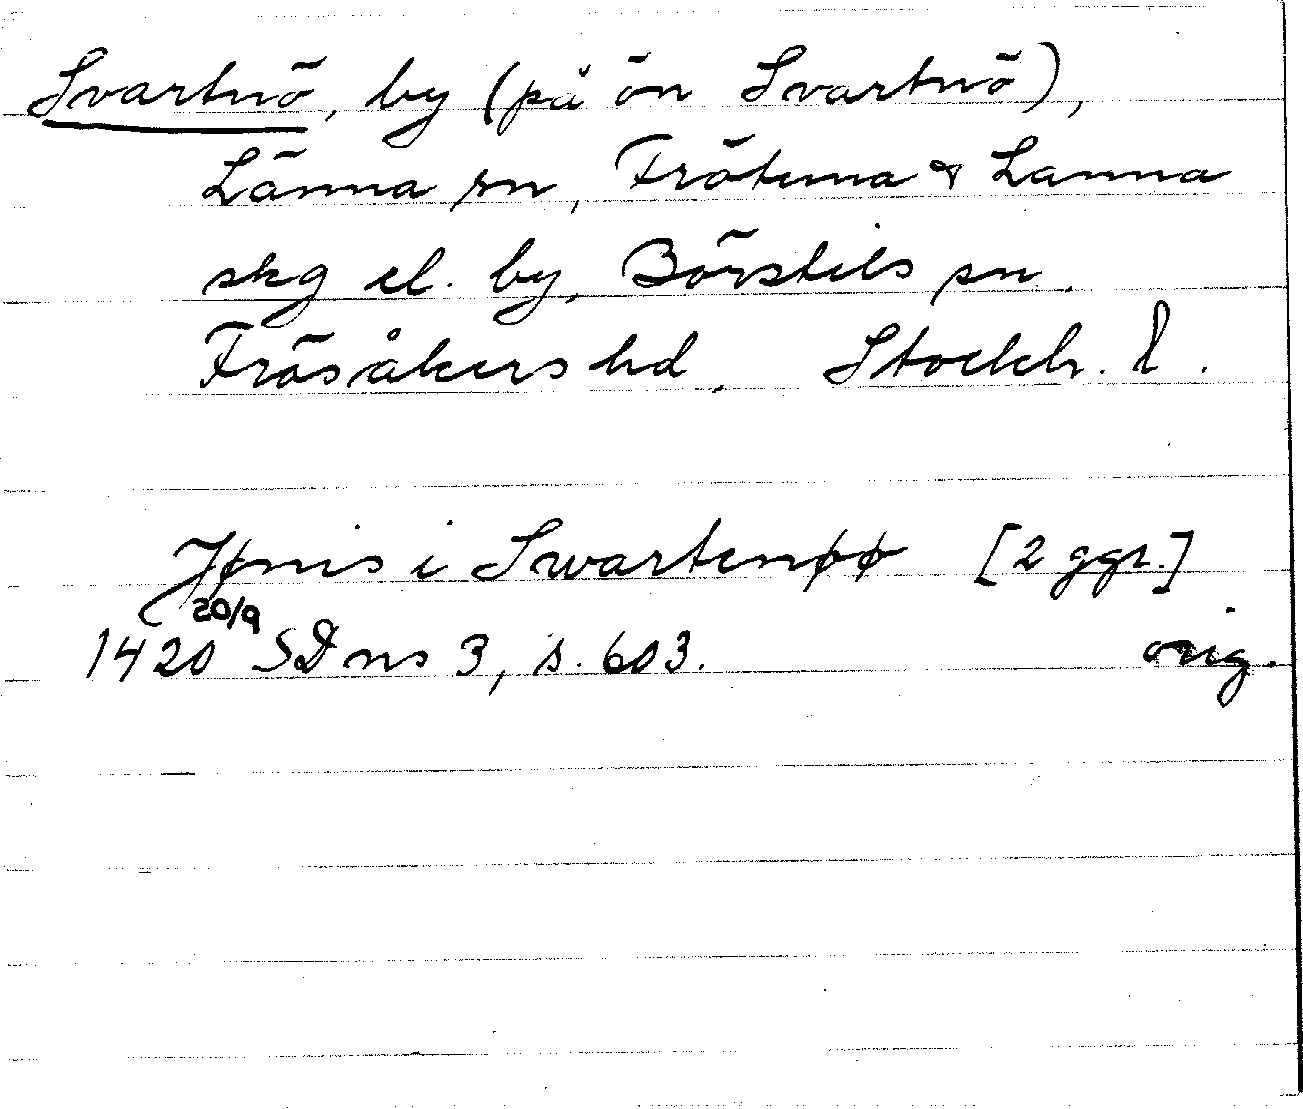 Svartnö, by (på ön Svartnö),
Länna sn, Frötuna & Länna
skg el. by, Börstils sn,
Frösåkers hd, Stockh. l.
Jønis i Swartenøø [2 ggr.]
1420 20/9 SD ns 3, s. 603. orig.